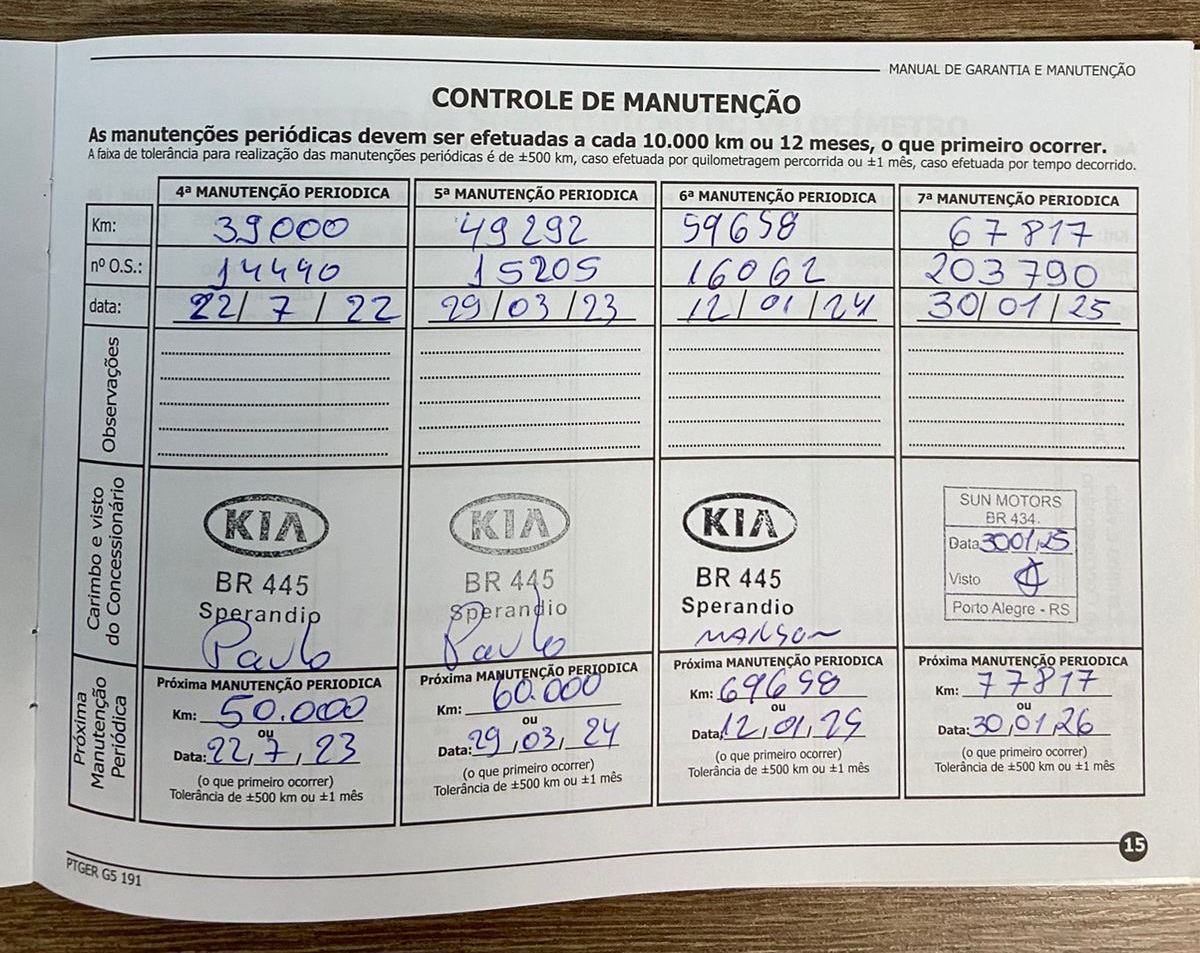 MANUAL DE GARANTIA E MANUTENÇÃO
CONTROLE DE MANUTENÇÃO
As manutenções periódicas devem ser efetuadas a cada 10.000 km ou 12 meses, o que primeiro ocorrer.
A faixa de tolerância para realização das manutenções periódicas é de ±500 km, caso efetuada por quilometragem percorrida ou ±1 mês, caso efetuada por tempo decorrido.
4ª MANUTENÇÃO PERIODICA 5ª MANUTENÇÃO PERIODICA 6ª MANUTENÇÃO PERIODICA 7ª MANUTENÇÃO PERIODICA
Km: 39000 49292 59658 67817
nº O.S.: 14490 15205 16062 203790
data: 22/7/22 29/03/23 12/01/24 30/01/25
Observações
Carimbo e visto
do Concessionário
KIA
BR 445
Sperandio
Paulo
KIA
BR 445
Sperandio
Paulo
KIA
BR 445
Sperandio
MANSON
SUN MOTORS
BR 434.
Data 3001,25
Visto
Porto Alegre - RS
Próxima
Manutenção
Periódica
Próxima MANUTENÇÃO PERIODICA
Km: 50.000
ou
Data: 22,7,23
(o que primeiro ocorrer)
Tolerância de ±500 km ou ±1 mês
Próxima MANUTENÇÃO PERIODICA
Km: 60.000
ou
Data: 29,03,24
(o que primeiro ocorrer)
Tolerância de ±500 km ou ±1 mês
Próxima MANUTENÇÃO PERIODICA
Km: 69658
ou
Data: 12,01,25
(o que primeiro ocorrer)
Tolerância de ±500 km ou ±1 mês
Próxima MANUTENÇÃO PERIODICA
Km: 77817
ou
Data: 30,01,26
(o que primeiro ocorrer)
Tolerância de ±500 km ou ±1 mês
PTGER G5 191
15